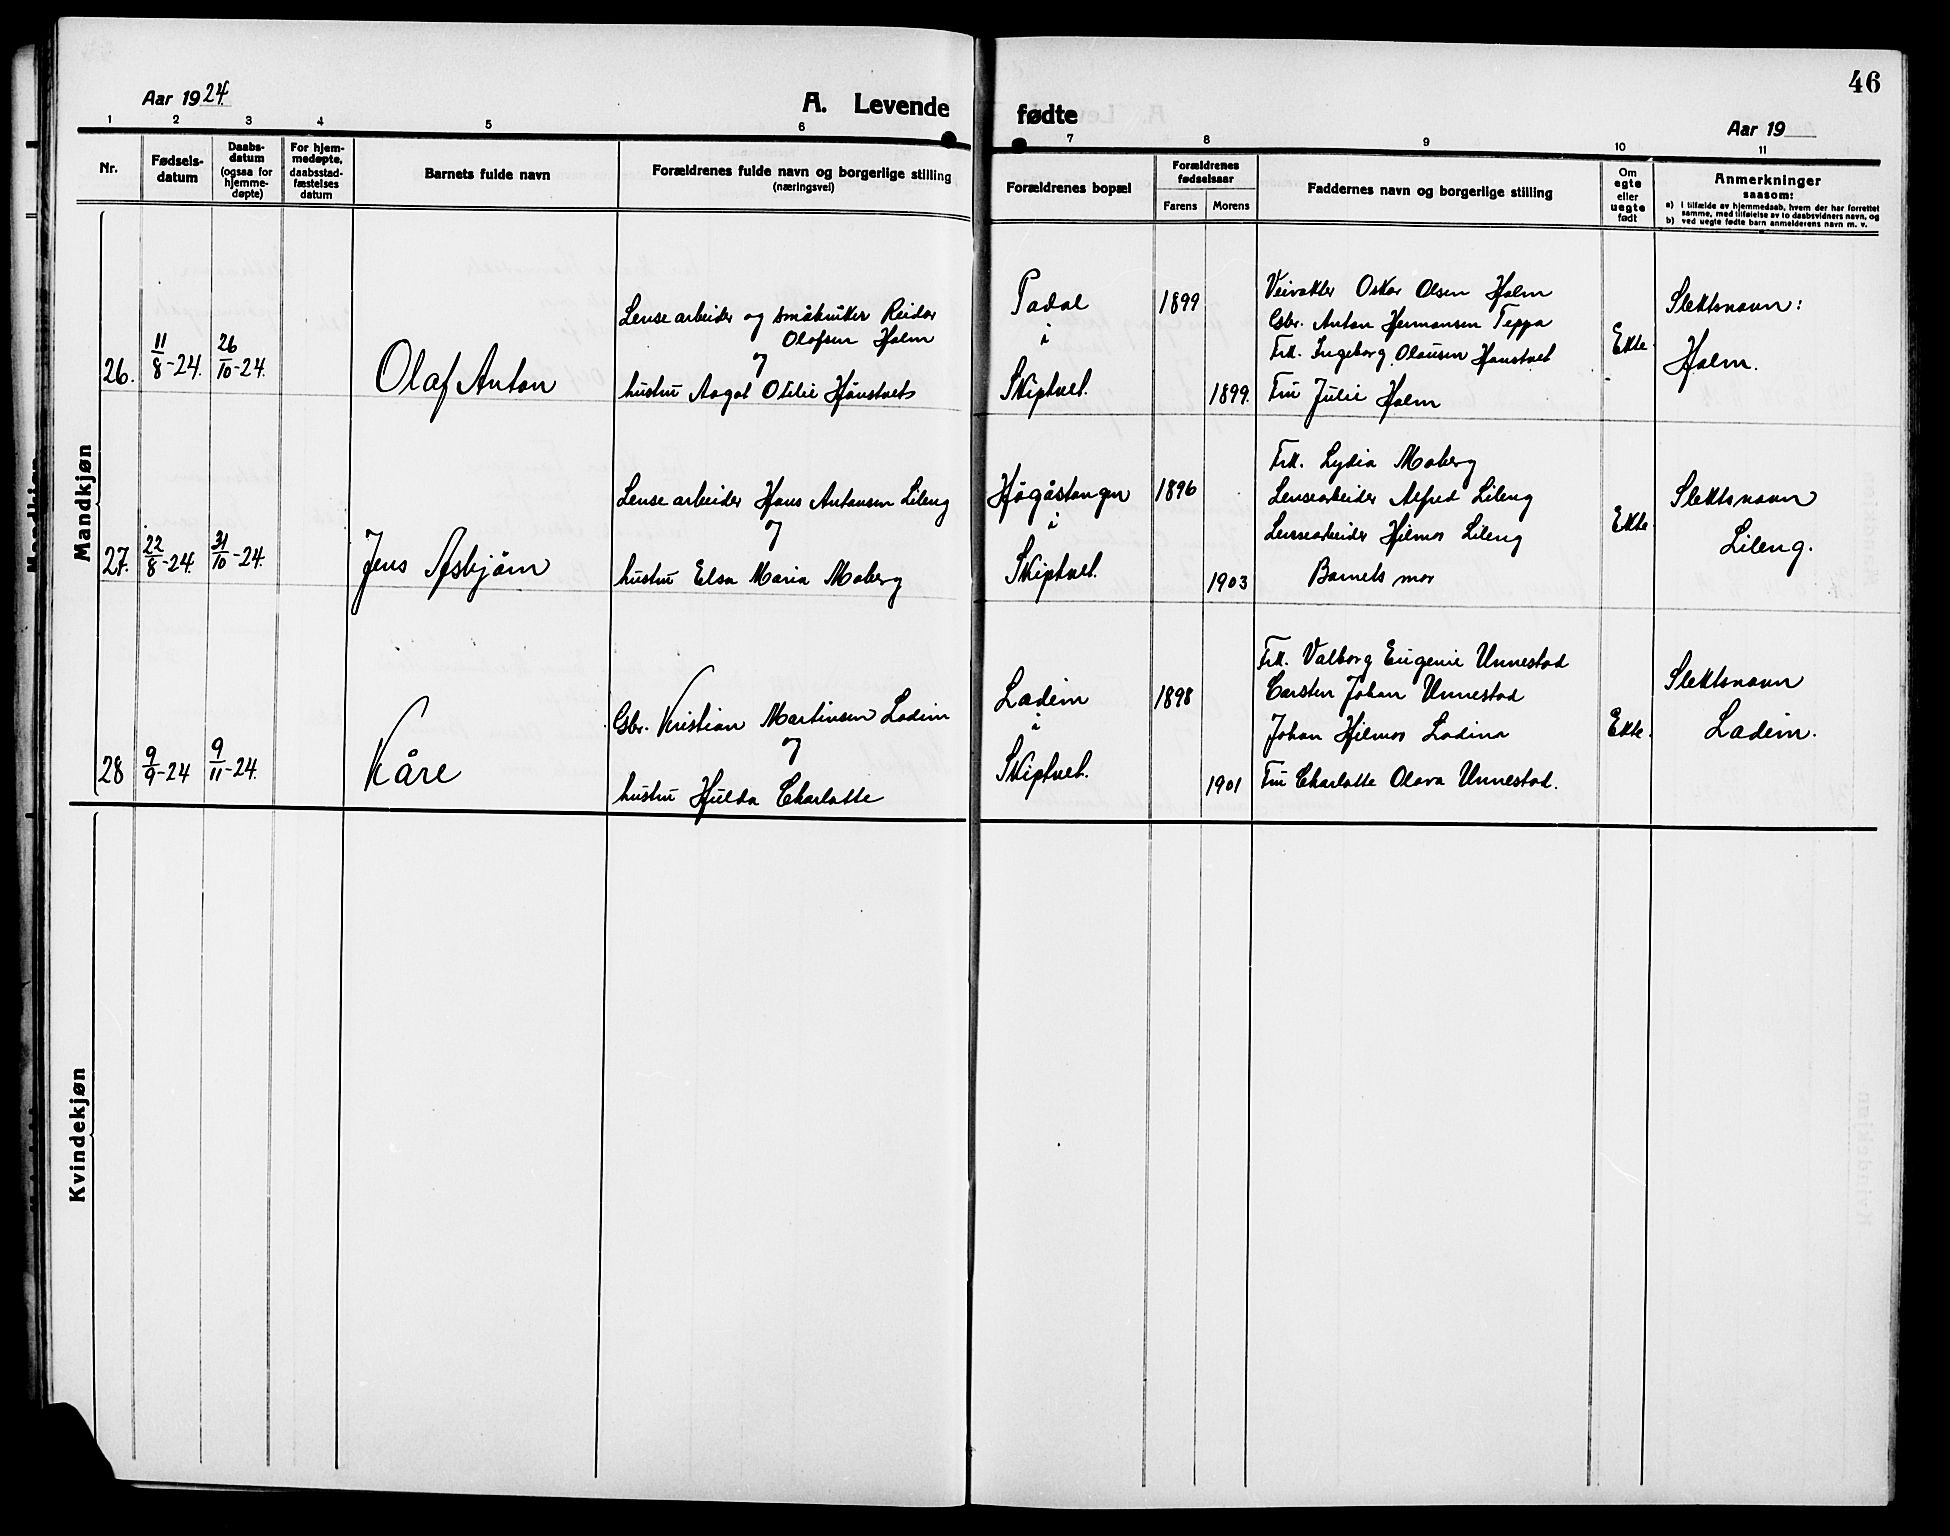 46
Aar 1924.
A. Levende
fødte
Aar 19
1 2 3 4 5 6 7 8 9 10 11
Nr.
Fødsels-
datum
Daabs-
datum
(ogsaa for
hjemme-
døpte)
For hjem-
medøpte,
daabsstad-
fæstelses
datum
Barnets fulde navn
Forældrenes fulde navn og borgerlige stilling
(næringsvei)
Forældrenes bopæl
Forældrenes
fødselsaar
Farens Morens
Faddernes navn og borgerlige stilling
Om
egte
eller
uegte
født
Anmerkninger
saasom:
a) i tilfælde av hjemmedaab, hvem der har forrettet
samme, med tilføielse av to daabsvidners navn, og
b) ved uegte fødte barn anmelderens navn m. v.
Mandkjøn
26.
11/8-24.
26/10-24.
Olaf Anton
Lensearbeider og småbruker Reidar
Olafsen Holm
og
hustru Aagot Otilie Hånstvet
i
Skiptvet.
1899
1899.
Veivokter Oskar Olsen Holm
Gbr. Anton Hermansen Teppa
Frk. Ingeborg Olausen Haustvet
Fru Julie Holm
Ekte.
Slektsnavn:
Holm.
27.
22/8-24.
31/10-24.
Jens Asbjørn
Lensearbeider Hans Antonsen Lileng
og
hustru Elsa Maria Moberg
Högåstangen
i
Skiptvet.
1896
1903
Frk. Lydia Moberg
Lensearbeider Alfred Lileng
Lensearbeider Hilmar Lileng
Barnets mor
Ekte.
Slektsnavn
Lileng.
28
9/9-24
9/11-24.
Kåre
Gbr. Kristian Martinsen Ladim
og
hustru Hulda Charlotte
Ladeim
i
Skiptvet.
1898
1901
Frk. Valborg Eugenie Unnestad
Carsten Johan Unnestad
Johan Hilmar
Fru Charlotte Olava Unnestad.
Ekte.
Slektsnavn
Ladeim.
Kvindekjøn